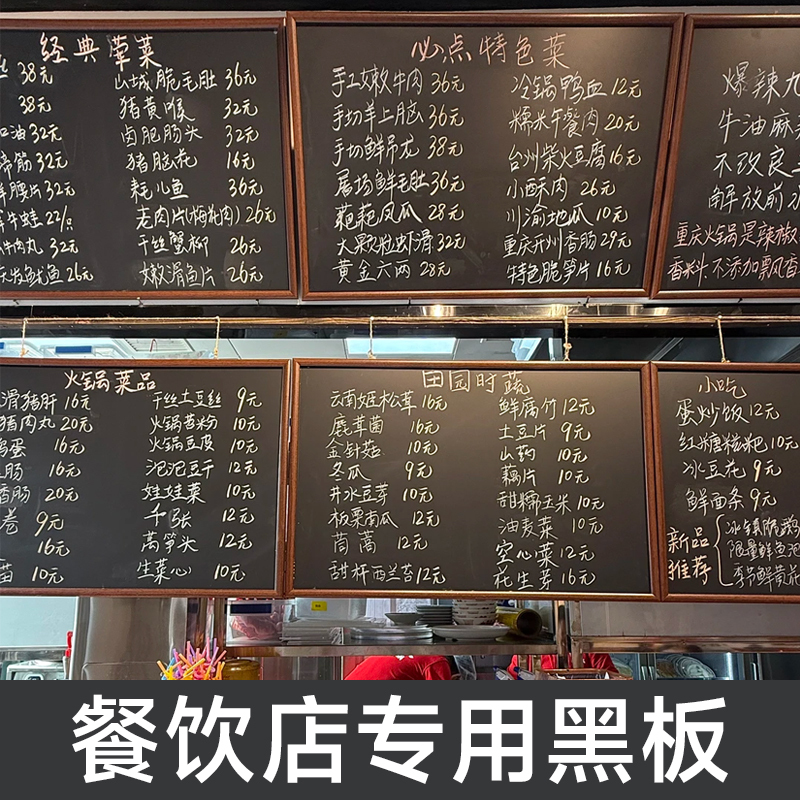 经典荤菜
38元 山城脆毛肚 36元
38元 猪黄喉 32元
油 32元 卤肥肠头 32元
蹄筋 32元 猪脑花 16元
腰片 32元 耗儿鱼 36元
牛蛙 22元 老肉片(梅花肉) 26元
牛肉丸 32元 千丝蟹柳 26元
鱿鱼 26元 嫩滑鱼片 26元
必点特色菜
手工嫩牛肉 36元 冷锅鸭血 12元
手切羊上脑 36元 糯米午餐肉 20元
手切鲜吊龙 38元 台州柴火豆腐 16元
屠场鲜毛肚 36元 小酥肉 26元
粑粑凤爪 28元 川渝地瓜 10元
大颗粒虾滑 32元 重庆开州香肠 29元
黄金六两 28元 特色脆笋片 16元
爆辣九
牛油麻
不改良
解放前
重庆火锅是辣椒
香料不添加飘香
火锅菜品
滑猪肝 16元 干丝土豆丝 9元
猪肉丸 20元 火锅苕粉 10元
鸡蛋 16元 火锅豆皮 10元
肠 16元 泡泡豆干 12元
香肠 20元 娃娃菜 10元
卷 9元 千张 12元
16元 莴笋头 12元
苗 10元 生菜心 10元
田园时蔬
云南姬松茸 16元 鲜腐竹 12元
鹿茸菌 16元 土豆片 9元
金针菇 10元 山药 10元
冬瓜 9元 藕片 10元
井水豆芽 10元 甜糯玉米 10元
板栗南瓜 12元 油麦菜 10元
茼蒿 12元 空心菜 12元
甜杆西兰苔 12元 花生芽 16元
小吃
蛋炒饭 12元
红糖糍粑 10元
冰豆花 9元
鲜面条 9元
新品推荐
冰镇脆鹅
限量鲜鱼泡
季节鲜黄花
餐饮店专用黑板